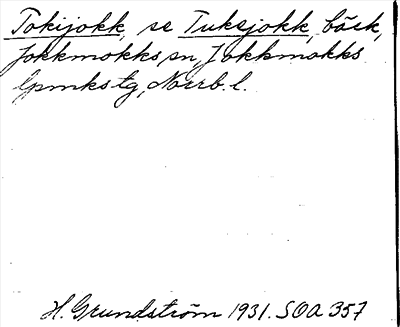 Tokijokk, se Tuksjokk, bäck,
Jokkmokks sn, Jokkmokks
lpmks tg, Norrb. l.
H. Grundström 1931. SOA 357